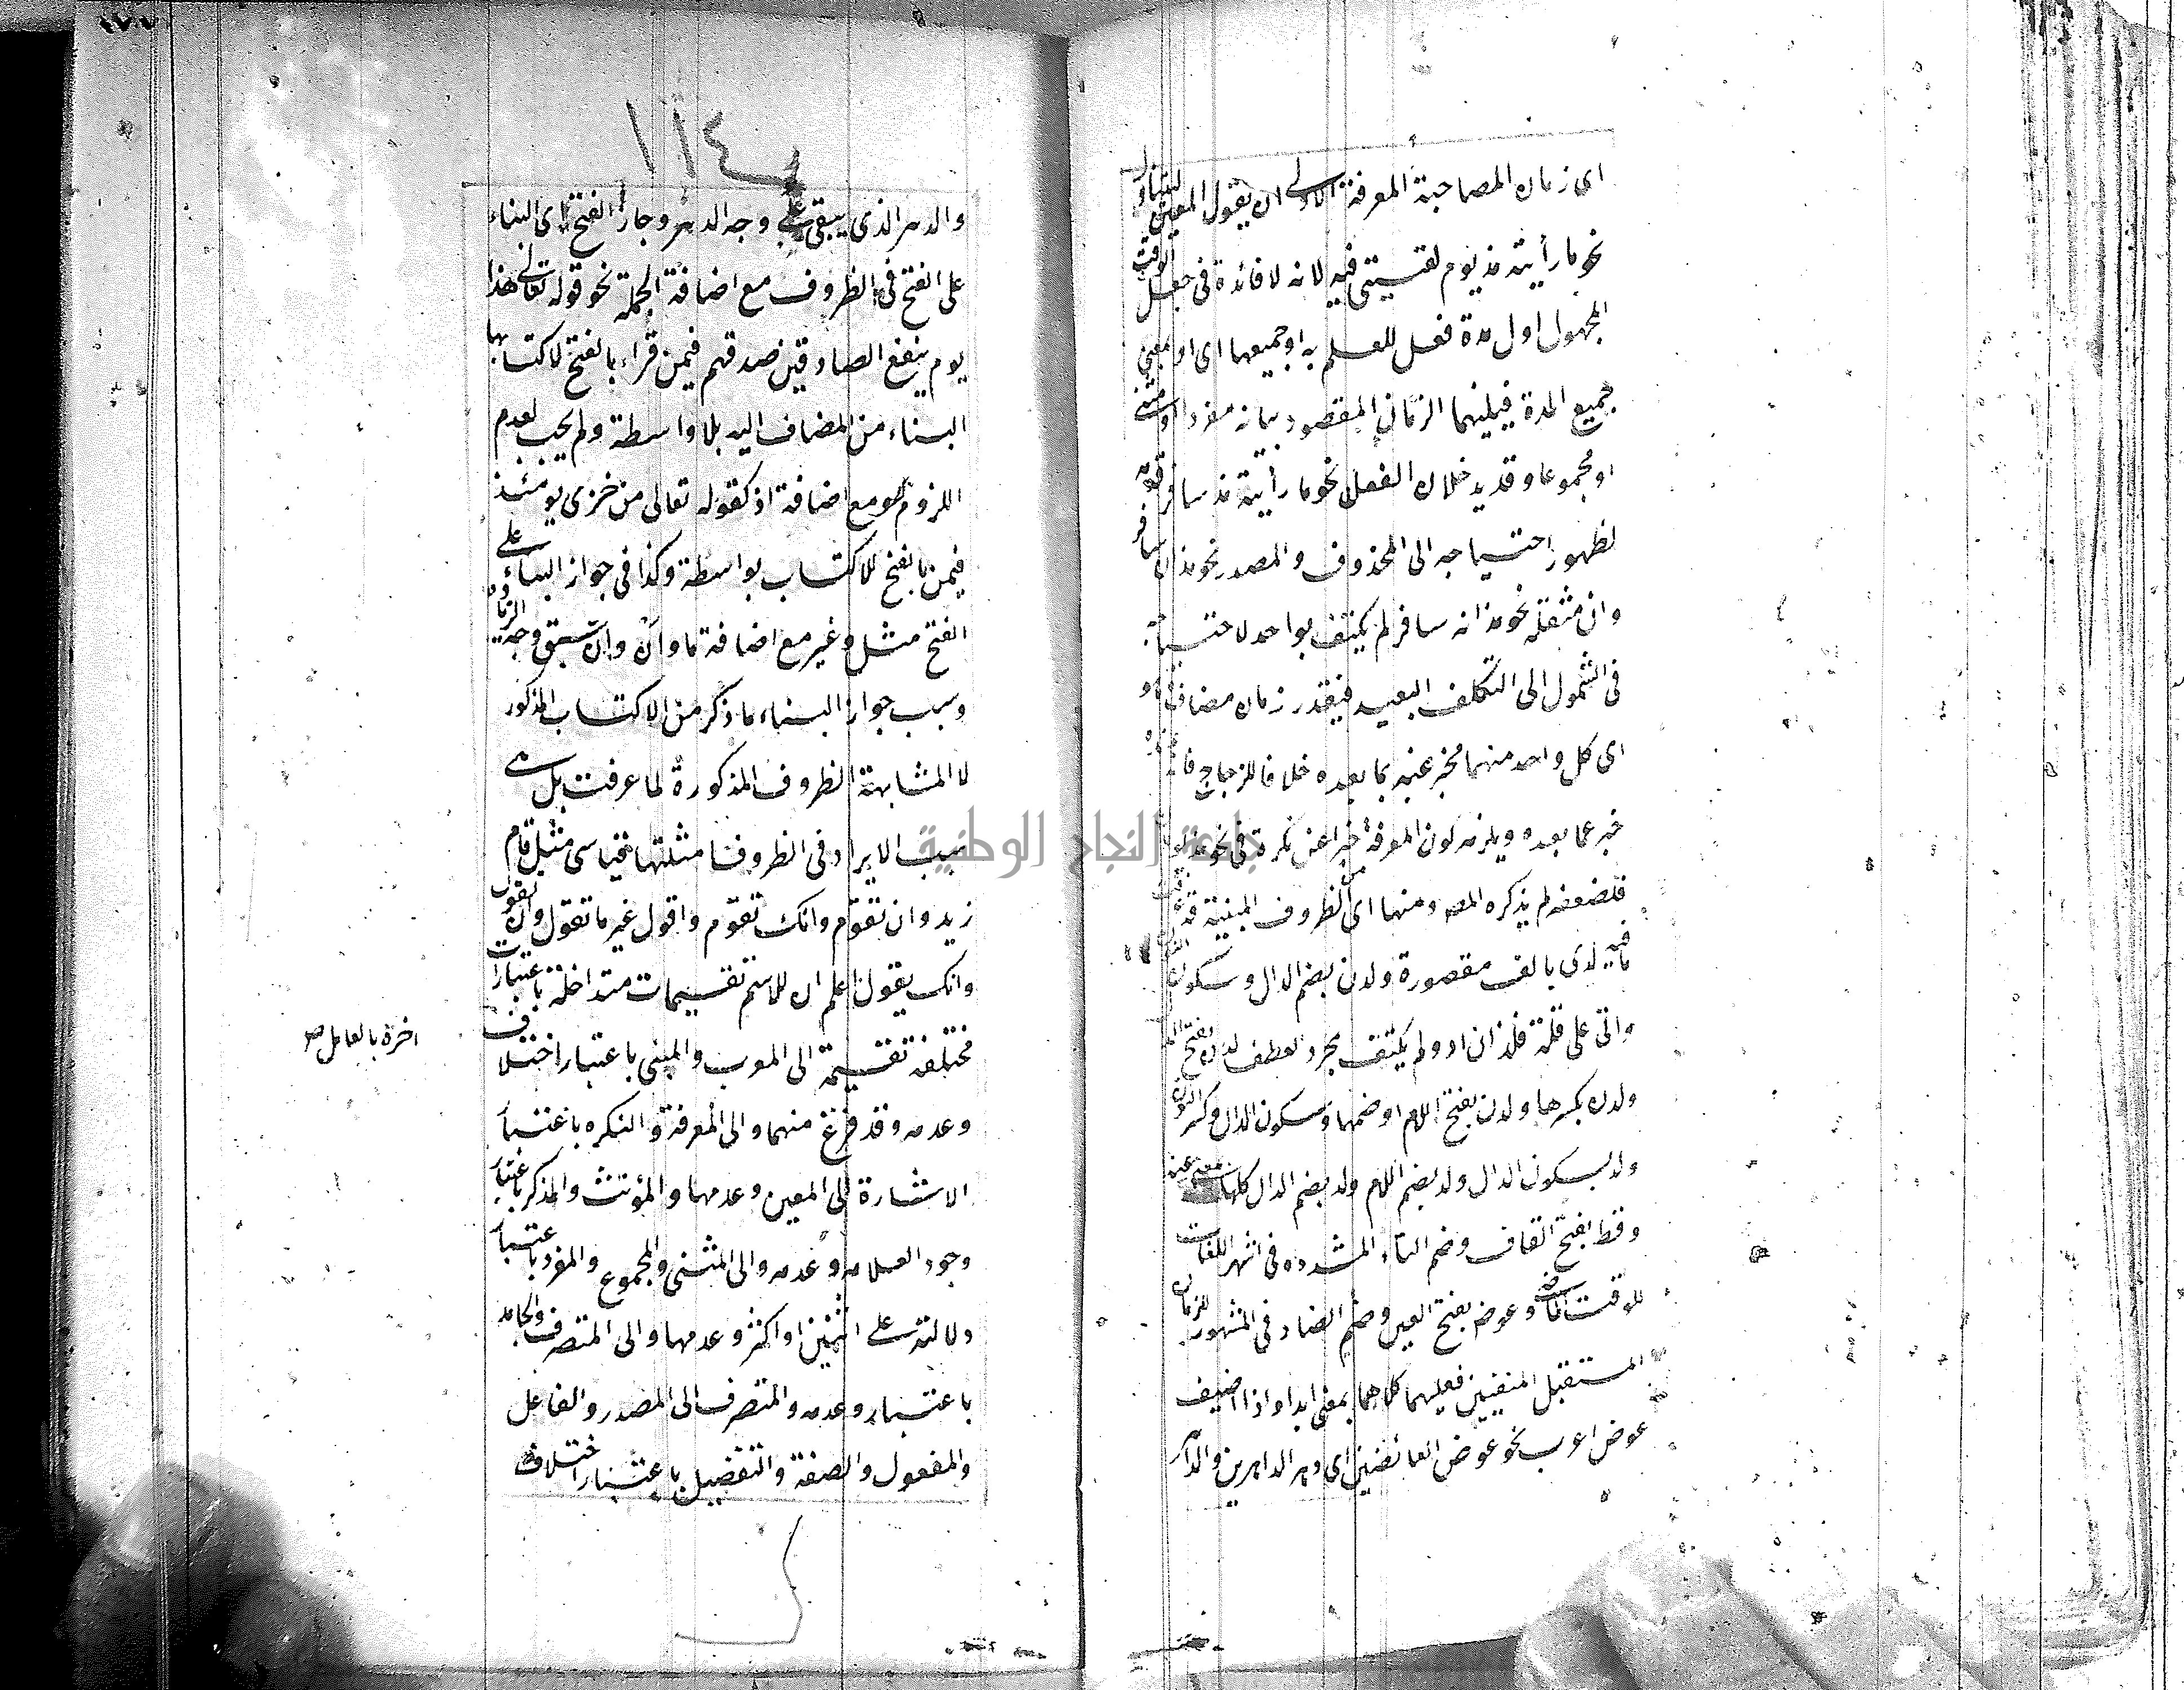 اى زمان المصاحبة المعرفة الاولى ان يقول المعين ليتناول
نحو ما رأيته مذ يوم لقيتنى فيه لانه لا فائدة فى جعل الوقت
المجهول اول مدة فعل للعلم به او جميعها اى او بمعنى
جميع المدة فيليهما الزمان المقصود بيانه مفردا او مثنى
او مجموعا وقد يدخلان الفعل نحو ما رأيته مذ سافر
لظهور احتياجه الى المحذوف والمصدر نحو مذ ان سافر
وان مثقلة نحو مذ انه سافر لم يكتف بواحد لاحتياج
فى الشمول الى التكلف البعيد فيقدر زمان مضاف
اى كل واحد منهما مخبر عنه بما بعده خلافا للزجاج فانه
خبر عما بعده ويلزمه كون المعرفة خبرا عن نكرة فى نحو
فلضعفه لم يذكره المصه ومنها اى من الظروف المبنية
ما فيه لدى بالف مقصورة ولدن بضم الدال وسكون النون
واتى على قلة فلذا ان اد ولم يكتف بمجرد العطف لدن بفتح
ولدن بكسرها ولدن بفتح اللام او ضمها وسكون الدال وكسر النون
ولد بسكون الدال ولد بضم اللام ولد بضم الدال كلها بمعنى عند
وقط بفتح القاف وضم الطاء المشدده فى اشهر اللغات
للوقت الماضى وعوض بفتح العين وضم الضاد فى المشهور للزمان
المستقبل المنفيين فعليهما كلاهما بمعنى ابدا واذا اضيف
عوض اعرب نحو عوض العائضين اى دهر الداهرين والدآر
١١٤
والدهر الذى يبقى على وجه الدهر وجاز الفتح اى البناء
على الفتح فى الظروف مع اضافة الجملة نحو قوله تعالى هذا
يوم ينفع الصادقين صدقهم فيمن قراء بالفتح لاكتسابها
البناء من المضاف اليه بلا واسطة ولم يجب لعدم
اللزوم ومع اضافة اذ كقوله تعالى من خزى يومئذ
فيمن بالفتح للاكتساب بواسطة وكذا فى جواز البناء على
الفتح مثل وغير مع اضافة ما وان وانّ سبق وجه
وسبب جواز البناء ما ذكر من الاكتساب المذكور
لا المشابهة الظروف المذكورة لما عرفت بل
سبب الايراد فى الظروف امثلتها قياسى مثل قام
زيد وان تقوم وانك تقوم واقول غير ما تقول وان تقول
وانك يقول اعلم ان للاسم تقسيمات متداخلة باعتبارات
مختلفة تقسيمه الى المعرب والمبنى باعتبار اختلاف
اخره بالعامل صح
وعدمه وقد فرغ منهما والى المعرفة والنكره باعتبار
الاشارة الى المعين وعدمها والمؤنث والمذكر باعتبار
وجود العلامه وعدمه والى المثنى والمجموع والمفرد باعتبار
دلالته على اثنين او اكثر وعدمها والى المتصرف والجامد
باعتباره وعدمه والمتصرف الى المصدر والفاعل
والمفعول والصفة والتفضيل باعتبار اختلاف
جامعة النجاح الوطنية